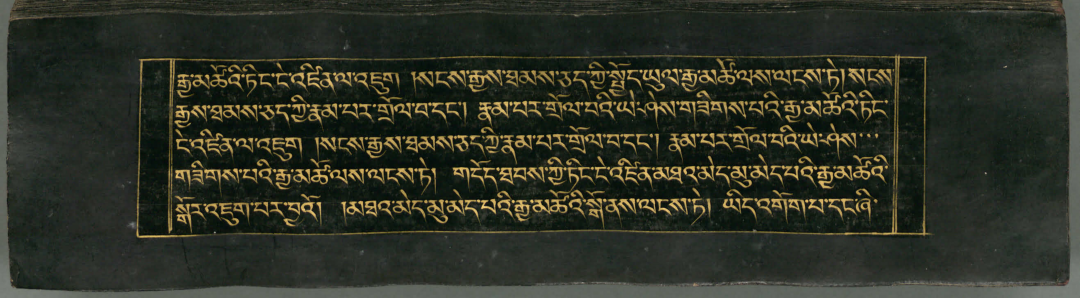 རྒྱ་མཚོའི་ཏིང་ངེ་འཛིན་ལ་འཇུག །སངས་རྒྱས་ཐམས་ཅད་ཀྱི་སྤྱོད་ཡུལ་རྒྱ་མཚོ་ལས་ལངས་ཏེ། སངས
རྒྱས་ཐམས་ཅད་ཀྱི་རྣམ་པར་གྲོལ་བ་དང་། རྣམ་པར་གྲོལ་བའི་ཡེ་ཤེས་གཟིགས་པའི་རྒྱ་མཚོའི་ཏིང་
ངེ་འཛིན་ལ་འཇུག །སངས་རྒྱས་ཐམས་ཅད་ཀྱི་རྣམ་པར་གྲོལ་བ་དང་། རྣམ་པར་གྲོལ་བའི་ཡེ་ཤེས་
གཟིགས་པའི་རྒྱ་མཚོ་ལས་ལངས་ཏེ། གདོད་ཐབས་ཀྱི་ཏིང་ངེ་འཛིན་མཐའ་མེད་མུ་མེད་པའི་རྒྱ་མཚོའི་
སྒོར་འཇུག་པར་བྱའོ། །མཐའ་མེད་མུ་མེད་པའི་རྒྱ་མཚོའི་སྒོ་ནས་ལངས་ཏེ། ཡིད་འགོག་པ་དང་ཞི་